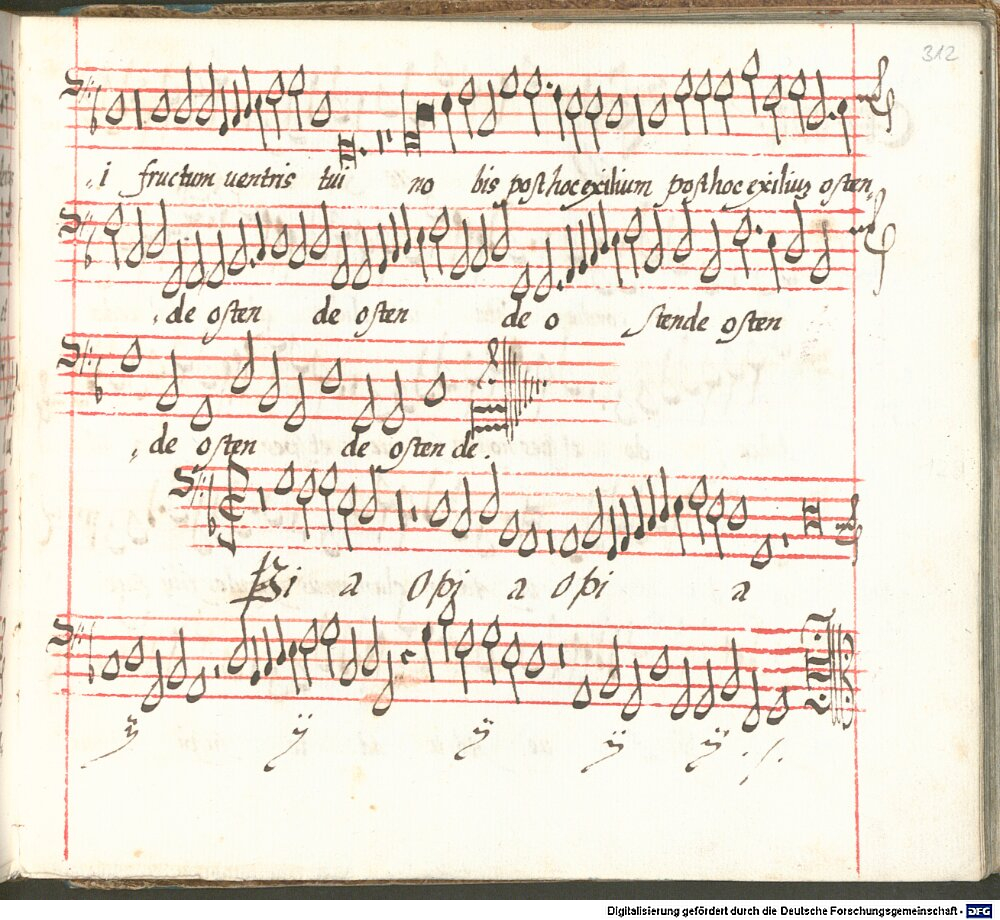 312
i fructum uentris tui no bis post hoc exilium post hoc exiliuʒ osten
de osten de osten de o stende osten
de osten de osten de.
Pi a O pi a O pi a
ij ij ij ij ij
Digitalisierung gefördert durch die Deutsche Forschungsgemeinschaft - DFG